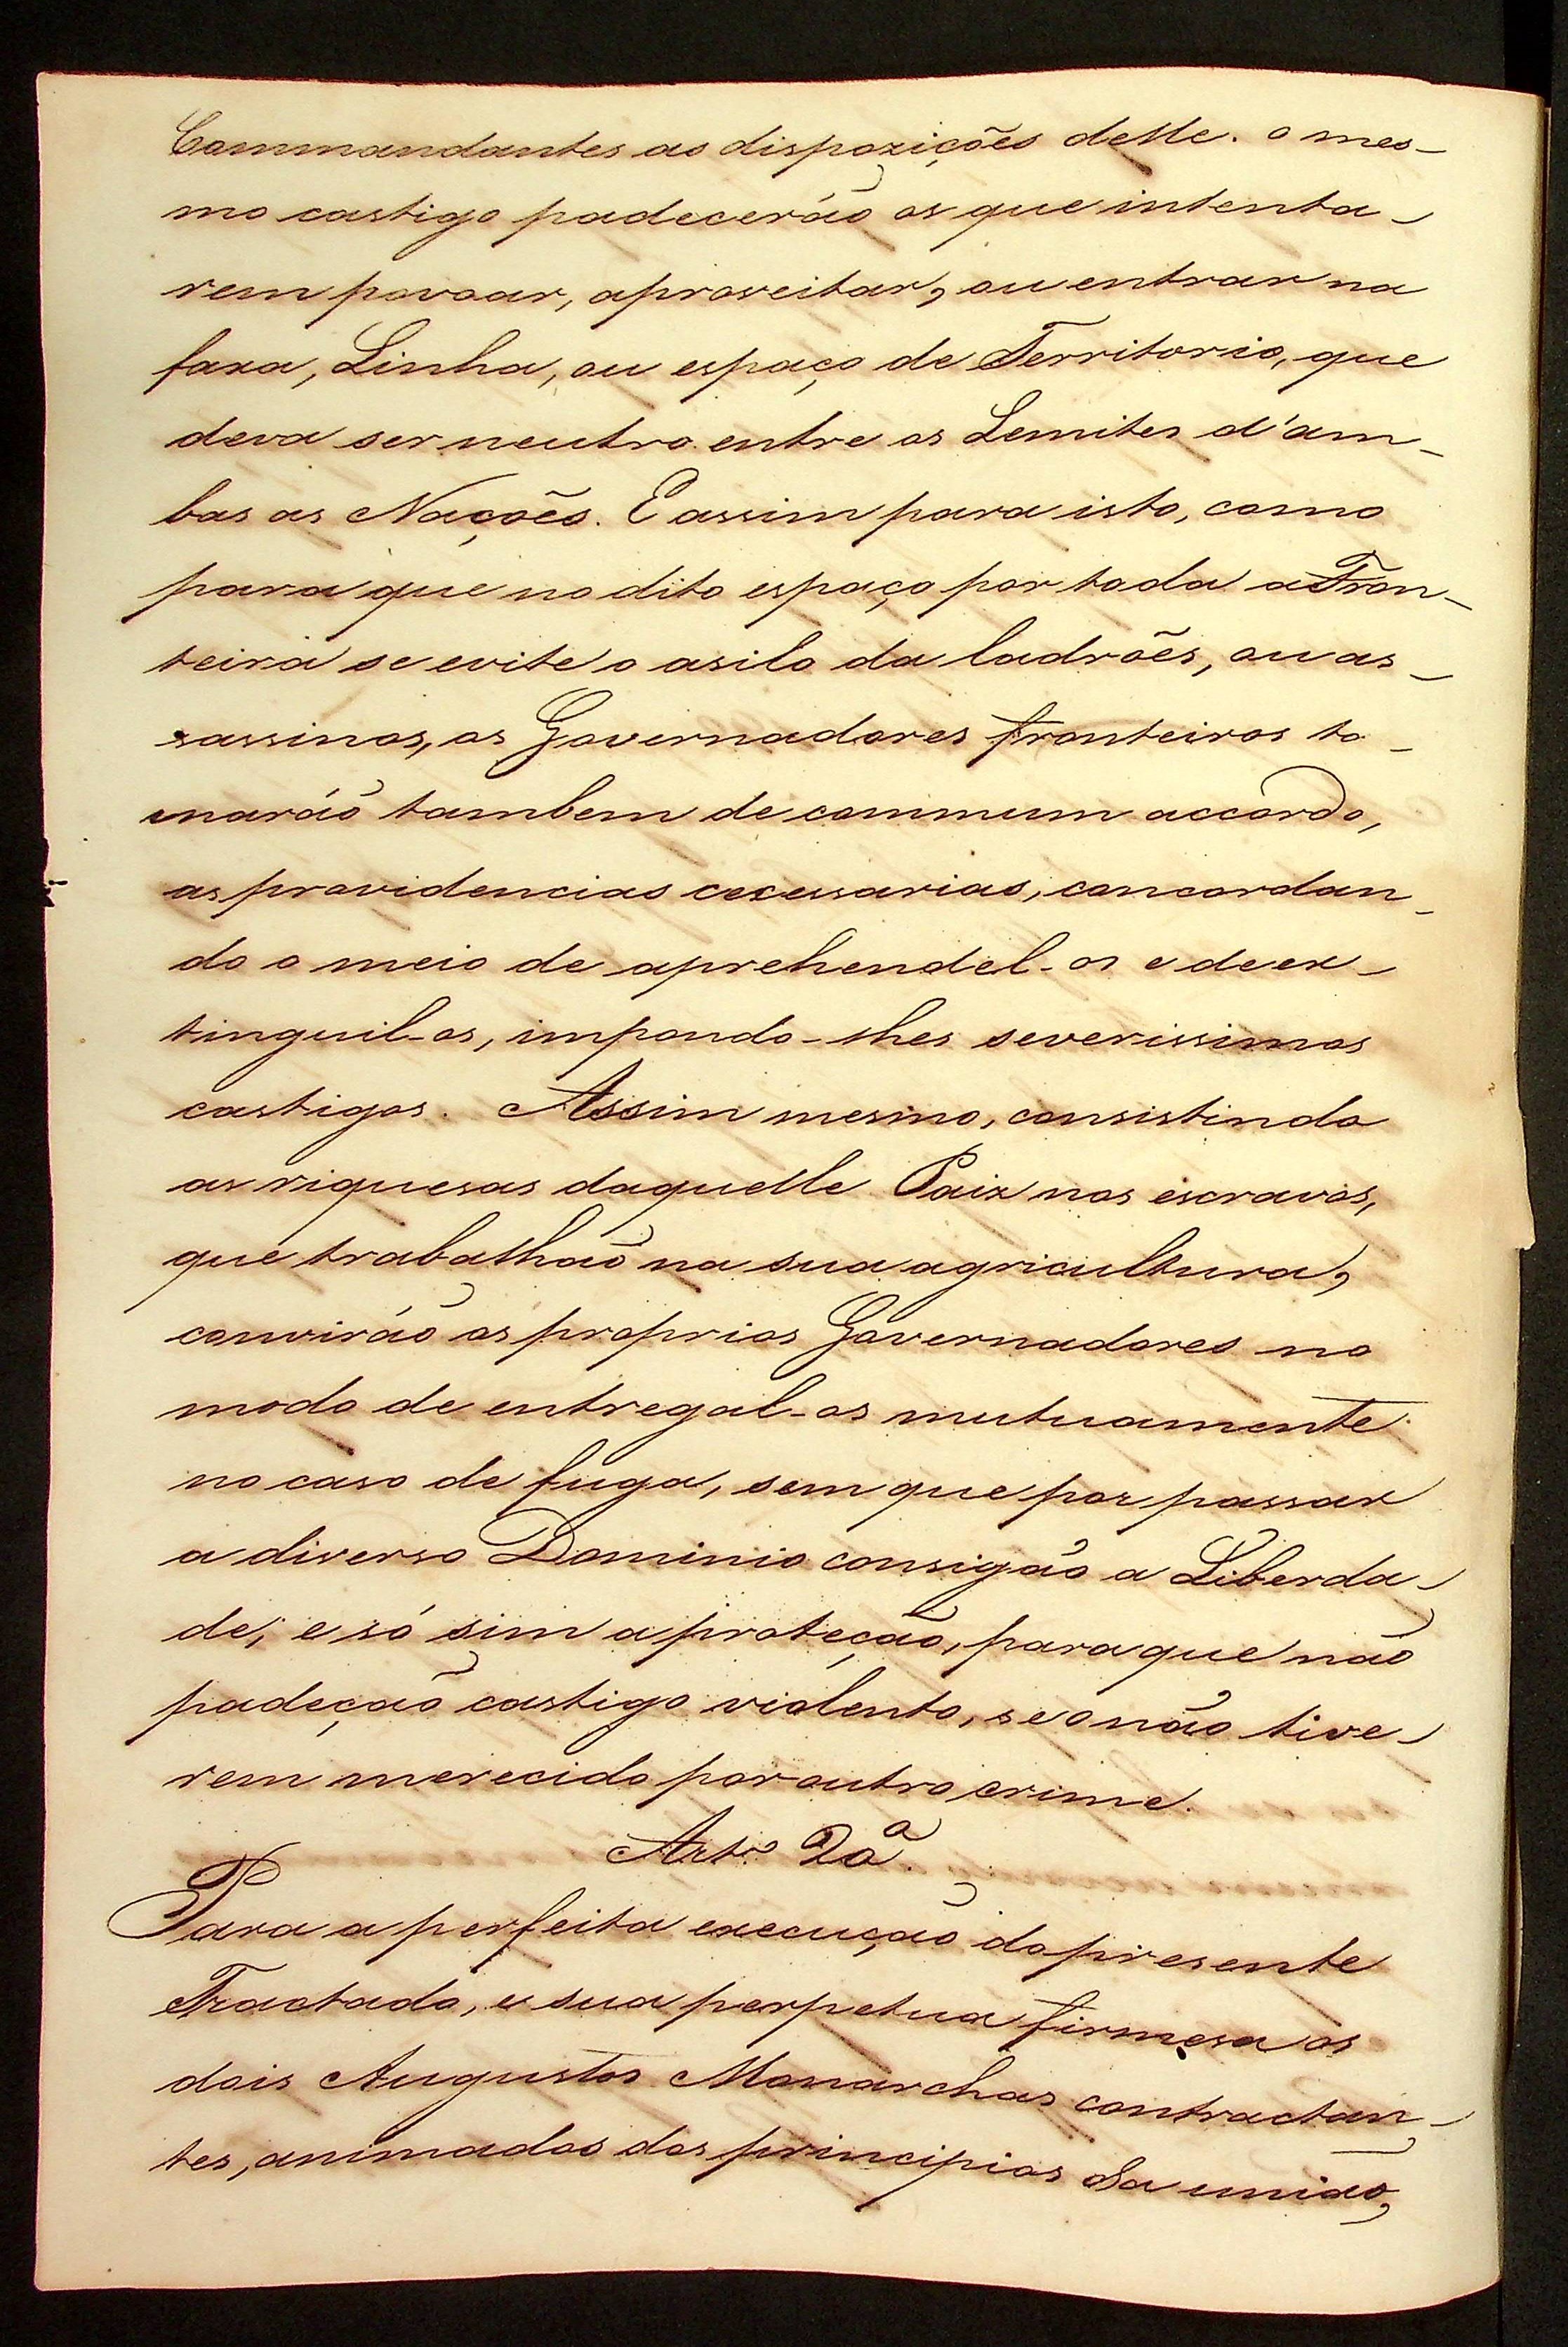 Commandantes as dispozições delle. O mes-
mo castigo padeceráõ os que intenta-
rem povoar, aproveitar, ou entrar na
faxa, Linha, ou espaço de Territorio, que
deva ser neutro entre os Lemites d'am-
bas as Nações. E assim para isto, como
para que no dito espaço por toda a Fron-
teira se evite o asilo da ladrões, ou as-
sassinos, os Governadores fronteiros to-
maráõ tambem de commum accordo,
as providencias cecessarias, concordan-
do o meio de aprehendel-os e de ex-
tinguil-os, impondo-lhes severissimos
castigos. Assim mesmo, consistindo
as riquesas daquelle Paiz nos escravos,
que trabalhaõ na sua agricultura,
conviráõ os proprios Governadores no
modo de entregal-os mutuamente
no caso de fuga, sem que por passar
a diverso Dominio consigão a Liberda-
de; e só sim a proteçaõ, para que naõ
padeçaõ castigo violento, se o não tive-
rem merecido por outro crime.
Artº 20º
Para a perfeita execução do presente
Tractado, e sua perpetua firmesa os
dois Augustos Monarchas contractan-
tes, animados dos principios da união,